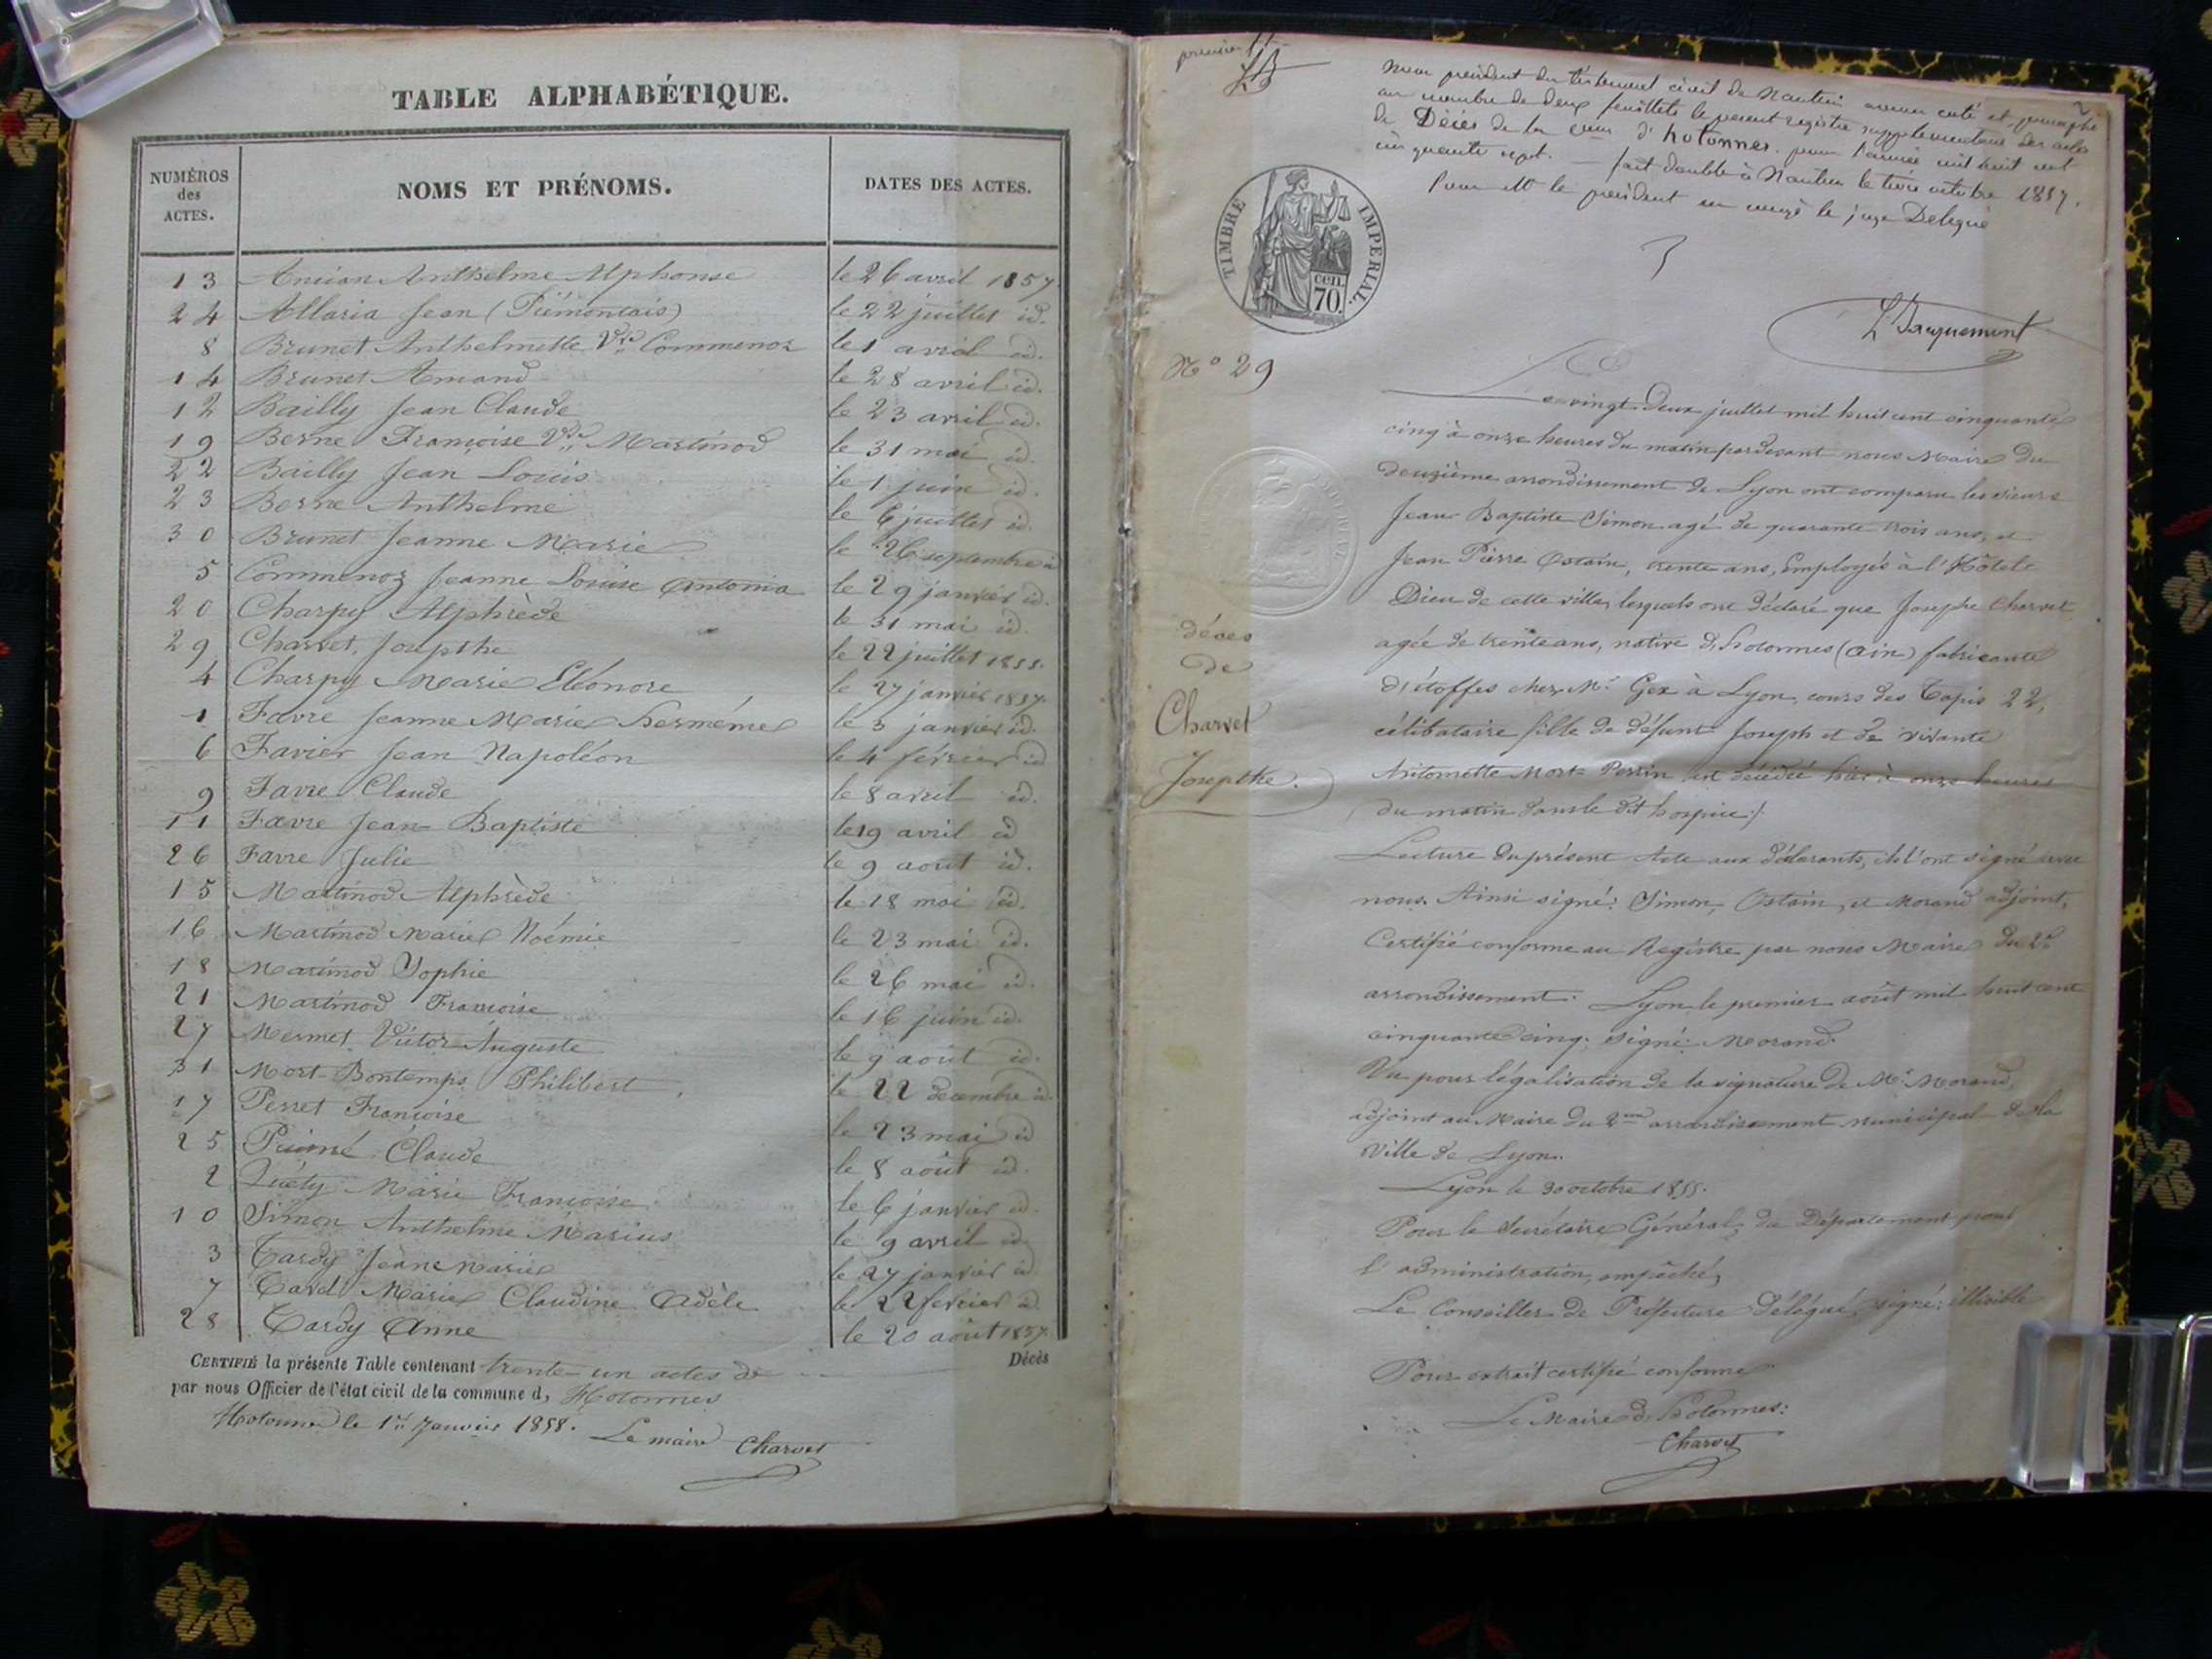 TABLE ALPHABÉTIQUE.
NUMÉROS
des
ACTES.
NOMS ET PRÉNOMS.
DATES DES ACTES.
13 Anthelme Alphonse le 26 avril 1857
24 Allaria Jean (Piémontais) le 22 juillet id.
8 Brunet Anthelmette Vve Commenoz le 1 avril id.
14 Brunet Amand le 28 avril id.
12 Bailly Jean Claude le 23 avril id.
19 Berne Françoise Vve Martinod le 31 mai id.
22 Bailly Jean Louis le 1 juin id.
23 Berne Anthelme le 6 juillet id.
30 Brunet Jeanne Marie le 26 septembre id
5 Commenoz Jeanne Louise Antonia le 29 janvier id.
20 Charpy Alphrède le 31 mai id.
29 Charvet, Josepthe le 22 juillet 1855.
4 Charpy Marie Eléonore le 27 janvier 1857.
1 Favre Jeanne Marie Herménie le 3 janvier id.
6 Favier Jean Napoléon le 4 février id
9 Favre Claude le 8 avril id.
11 Favre Jean-Baptiste le 19 avril id
26 Favre Julie le 9 août id.
15 Martinod Alphrède le 18 mai id.
16 Martinod Marie Noémie le 23 mai id.
18 Martinod Sophie le 26 mai id.
21 Martinod Françoise le 16 juin id.
27 Mermet Victor Auguste le 9 août id.
31 Mort-Bontemps Philibert le 22 décembre id.
17 Perret Françoise le 23 mai id
25 Claude le 8 août id.
2 Marie Françoise le 6 janvier id.
10 Simon Anthelme Marius le 9 avril id
3 Tardy Jean Marie le 27 janvier id
7 Tardi Marie Claudine Adèle le 22 fevrier id.
28 Tardy Anne le 20 août 1857.
CERTIFIÉ la présente Table contenant trente-un actes de Décès
par nous Officier de l'état civil de la commune d, Hotonnes
Hotonnes le 1er Janvier 1858. Le maire Charvet
premier
2
Nous président du civil de Nantua avons coté et paraphé
au nombre de deux feuillets le présent registre supplementaire des actes
de Décès de la d'hotonnes. pour l'année mil huit cent
cinquante sept. — fait double à Nantua le octobre 1857.
Pour Mr le président en congé le juge Délegué
TIMBRE IMPÉRIAL.
cen.
70.
L Jacquemont
No 29
décès
de
Charvet
Josepthe.
Le vingt-deux juillet mil huit cent cinquante
cinq à onze heures du matin pardevant nous Maire du
deuzième arrondissement de Lyon ont comparu les sieurs
Jean Baptiste Simon agé de quarante trois ans, et
Jean Pierre Ostain, trente ans, Employés à l'Hôtel-
Dieu de cette ville, lesquels ont déclaré que Josephe Charvet
agée de trente ans, native d, hotonnes (Ain) fabricante
d'étoffes chez Mr Gex à Lyon, cours des Tapis 22,
célibataire fille de défunt Joseph et de vivante
Antoinette Mort-Perrin est décédée hier à onze heures
du matin dans le dit hospice./.
Lecture du présent Acte aux déclarants, ils l'ont signé avec
nous. Ainsi signé: Simon, Ostain, et Morand adjoint,
Certifié conforme au Registre par nous Maire du 2e
arrondissement. Lyon le premier août mil huit cent
cinquante cinq. signé: Morand.
Vu pour légalisation de la signature de Mr Morand,
adjoint au Maire du 2me arrondissement municipal de la
Ville de Lyon.
Lyon le 30 octobre 1855.
Pour le Secrétaire Général, du Département pour
l'administration, empêché,
Le Conseiller de Préfecture délégué, signé: illisible
Pour extrait certifié conforme
Le Maire d, hotonnes:
Charvet